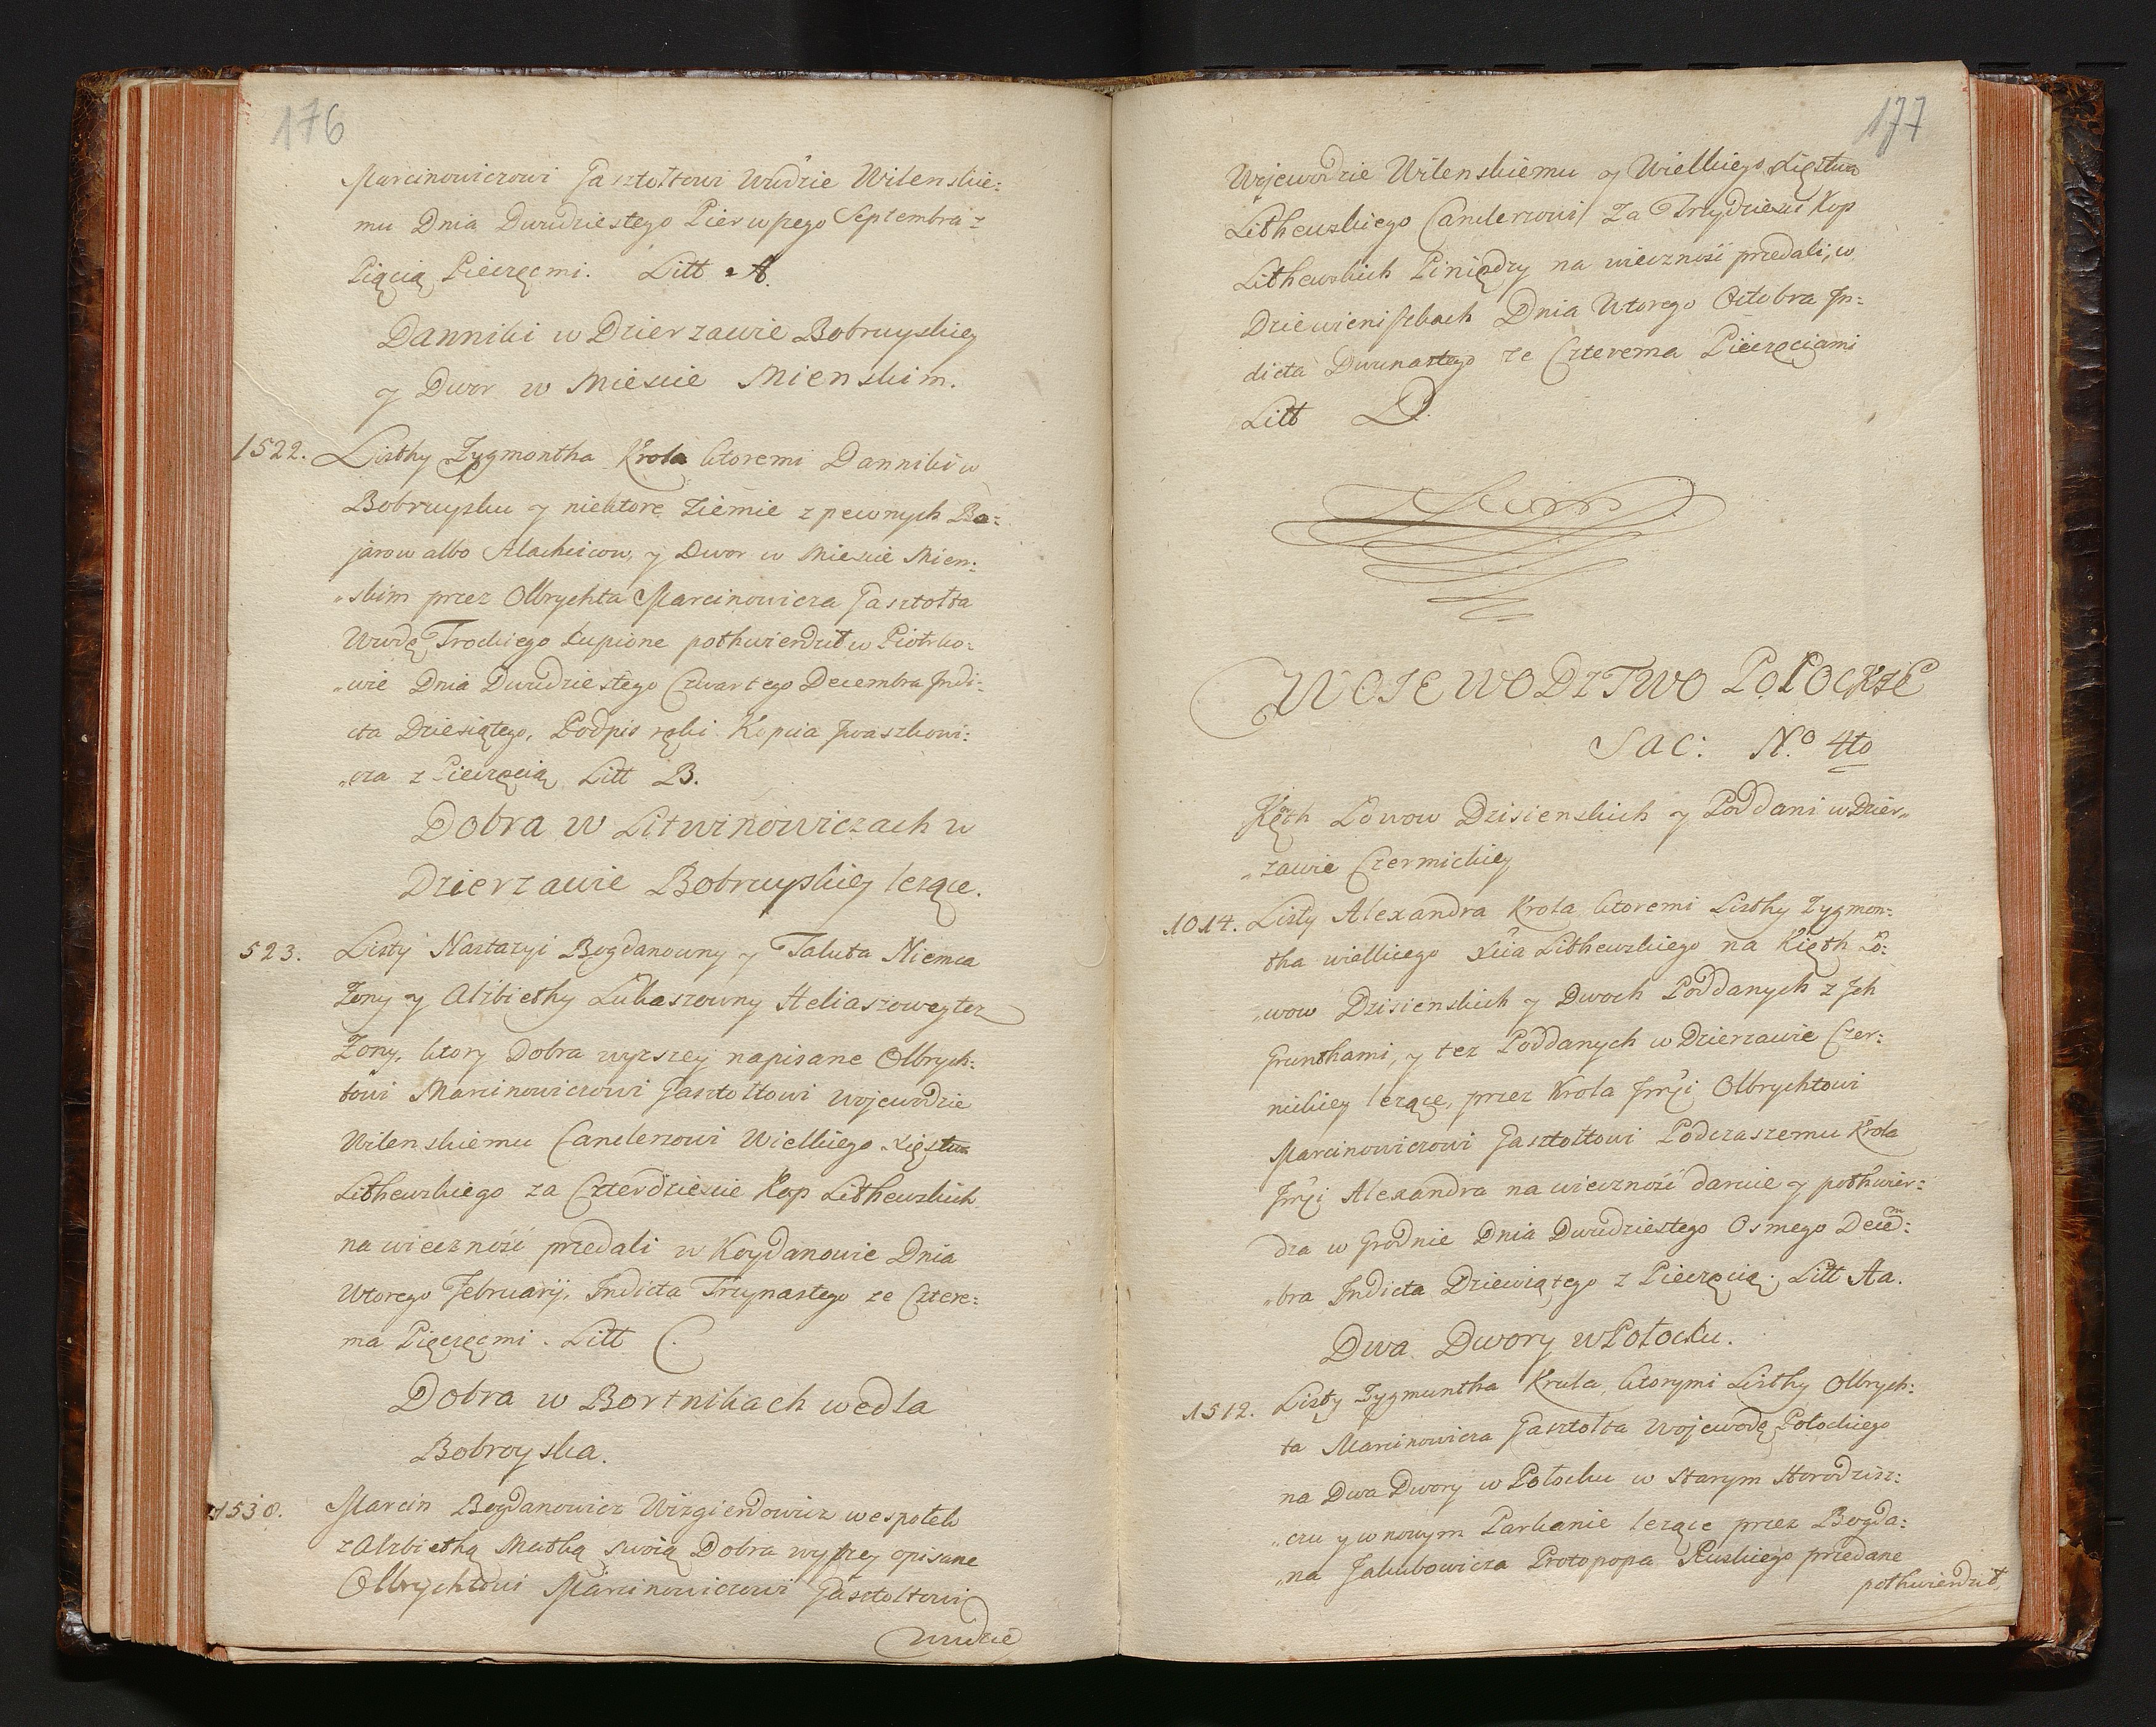 176
Marcinowiczowi Gasztoltowi Wwdzie Wilenskie:
mu Dnia Dwudziestego Pierwszego Septembra z
Pięcią Pieczęcmi. Litt A.
Danniki w Dzierzawie Bobruyskiey
y Dwor w Miescie Mienskim.
1522. Listhy Zygmontha Krola ktoremi Danniki w
Bobruysku y niektore Ziemie z pewnych Bo:
jarow albo Slachcicow, y Dwor w Miescie Mien:
„skim przez Olbrychta Marcinowicza Gasztołta
Wwdę Trockiego kupione pothwierdził w Piotrko:
„wie Dnia Dwudziestego Czwartego Decembra Indi:
cta Dziesiątego, Podpis ręki Kopcia Iwaszkowi:
„cza z Pieczęcią Litt B.
Dobra w Litwinowiczach w
Dzierzawie Bobruyskiey lezące.
523. Listy Nastazyi Bogdanowny y Taluta Niemca
Zony y Alzbiethy Lukaszowny Heliaszowey tez
Zony, ktory Dobra wyzszey napisane Olbrych:
towi Marcinowiczowi Gasztoltowi Wojewodzie
Wilenskiemu Canclerzowi Wielkiego Xięstwa
Lithewskiego za Czterdziescie Kop Lithewskich
na wieczność przedali w Koydanowie Dnia
Wtorego Februarij, Indicta Trzynastego ze Cztere:
ma Pięczęcmi. Litt C.
Dobra w Bortnikach wedla
Bobroyska.
1538. Marcin Bogdanowicz Wizgierdowicz wespołek
z Alzbiethą Matką swoią Dobra wyszey opisane
Olbrychtowi Marcinowiczowi Gasztoltowi
Wwdzie
177
Wojewodzie Wilenskiemu y Wielkiego Xięstwa
Lithewskiego Canclerzowi za Trzydziesci Kop
Lithewskich Piniędzy na wieczność przedali, w
Dziewieniszkach Dnia Wtorego Octobra In:
dicta Dwunastego ze Czterema Pieczęciami
Litt D.
WOIEWODZTWO POŁOCKIE
Sac: N.o 4to
Kęth Łowow Dzisienskich y Poddani w Dzier„
„zawie Czermickiey
1014. Listy Alexandra Krola ktoremi Listhy Zygmon:
tha wielkiego Xcia Lithewskiego na Kięth Ło:
„wow Dzisienskich y Dwoch Poddanych z Jch
Grunthami, y tez Poddanych w Dzierzawie Czer:
nickiey lezące, przez Krola Jmści Olbrychtowi
Marcinowiczowi Gasztołtowi Podczaszemu Krola
Jmści Alexandra na wieczność daruie y pothwier:
dza w Grodnie Dnia Dwudziestego Osmego Decem:
„bra Indicta Dziewiątego z Pieczęcią. Litt Aa.
Dwa Dwory w Połocku.
1512. Listy Zygmuntha Krula, ktorymi Listhy Olbrych:
ta Marcinowicza Gasztołta Wojewodę Połockiego
na Dwa Dwory w Połocku w Starym Horodzisz:
„czu y w nowym Parkanie lezące przez Bogda:
„na Jakubowicza Protopopa Ruskiego przedane
pothwierdził,